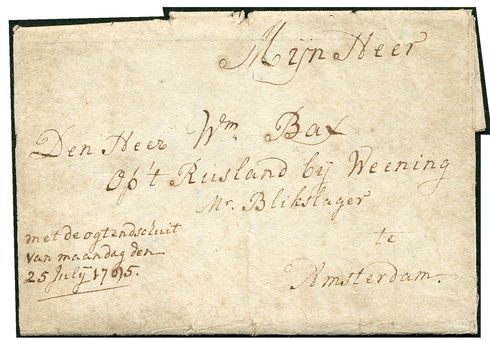 Mijn Heer
Den Heer Wm Bax
Op't Rusland bij Weening
Mr. Blikslager
te
Amsterdam.
met de ogtendschuit
van maandag den
25 Julij 1795.